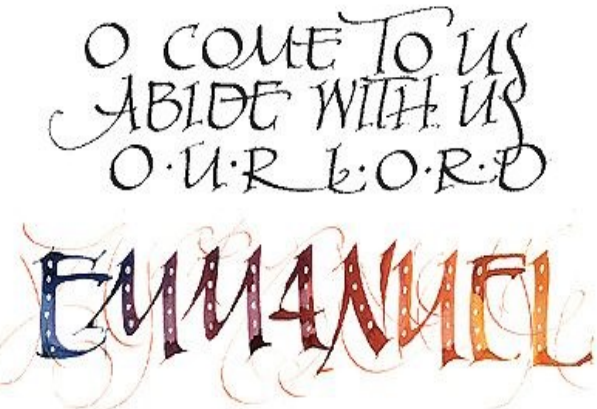 O COME TO US
ABIDE WITH US
O·U·R L·O·R·D
EMMANUEL